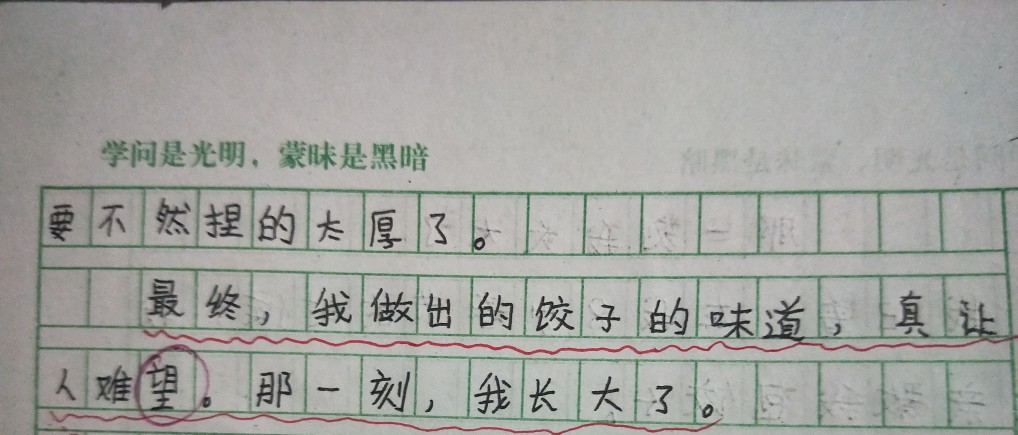 学问是光明，蒙昧是黑暗
要不然捏的太厚了。
最终，我做出的饺子的味道，真让
人难望。那一刻，我长大了。